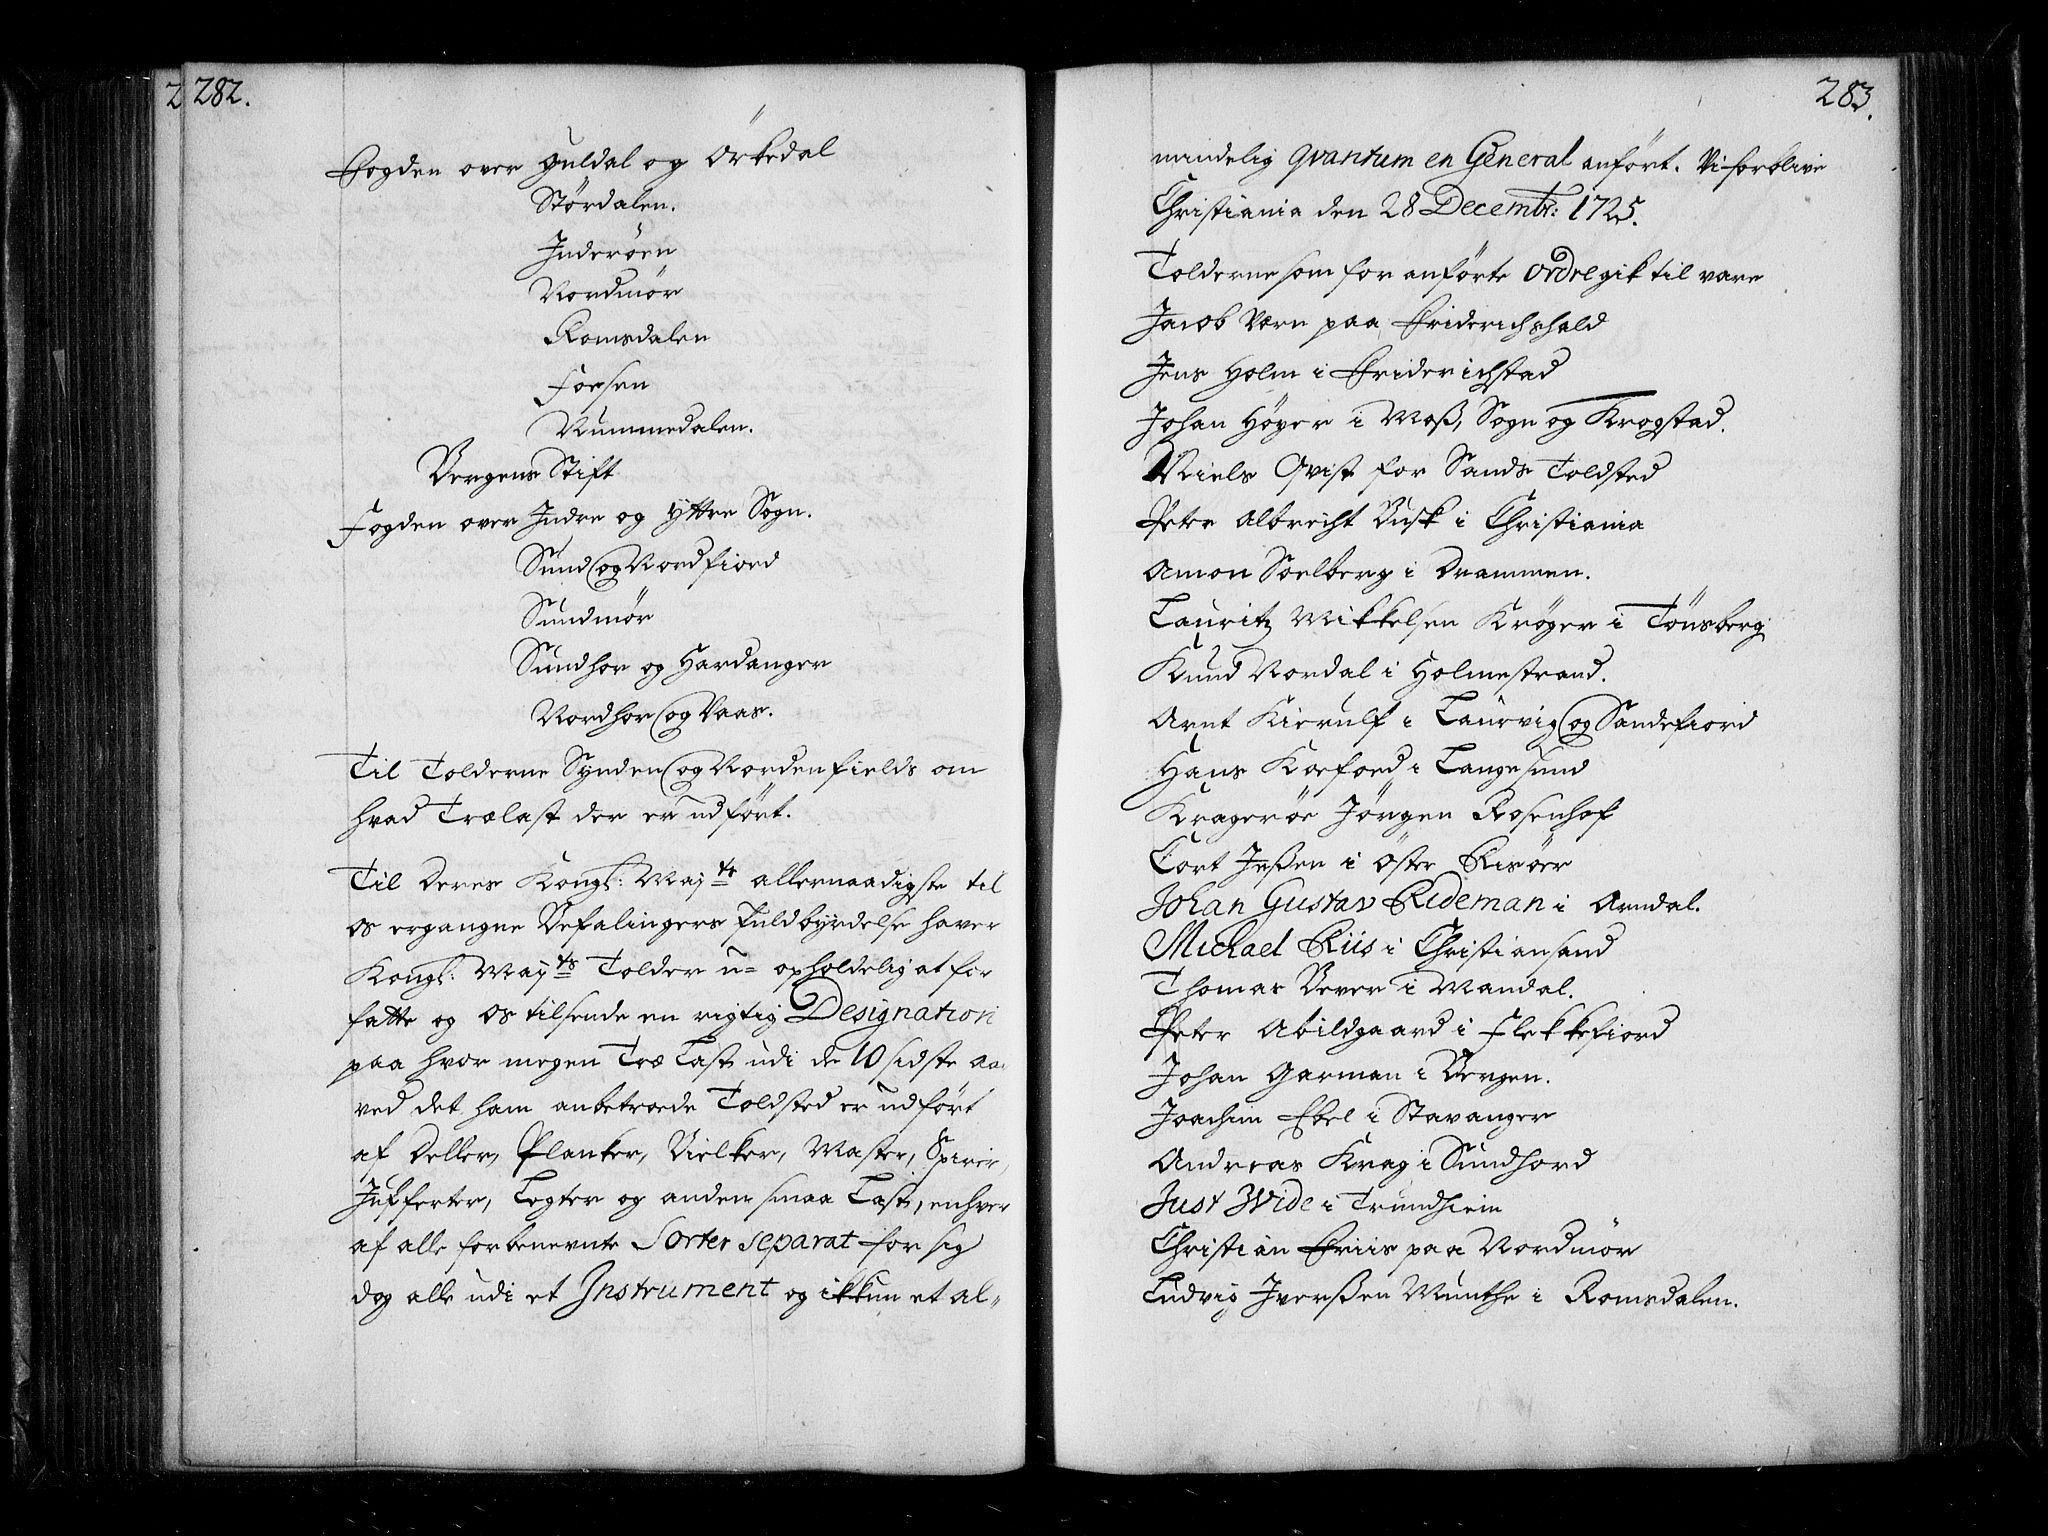 282.
Fogden over Guldal og Örkedal
Stördalen.
Inderöen
Nordmör
Romsdalen
Foesen
Nummedalen.
Bergens Stift
Fogden over Indre og Yttre Sogn.
Sund og Nordfiord
Sundmör
Sundhor og Hardanger
Nordhor og Vaas.
Til Tolderne Synden og Nordenfields om
hvad Trælast der er udfört.
Til Deres Kongl: Mayts allernaadigste til
os ergangne Befalingers fuldbyrdelse haver
Kongl: Mayts Tolder u= opholdelig at for
fatte og os tilsende en rigtig Designation
paa hvor megen Træ Last udi de 10 sidste aa
ved det ham anbetroede Toldsted er udfört
af Deller, Planker, Bielker, Master, Spirer,
Jufferter, Legter og anden smaa Last, enhver
af alle forbenevnte Sorter separat for sig
dog alle udi et Instrument og ikkun et al=
283.
mindelig Qvantum en General anfört. Vi forblive
Christiania den 28 Decembr: 1725.
Tolderne som for anförte Ordre gik til vare
JacobVærn paa Friderichshald
Jens Holm i Friderichstad
Johan Höyer i Moß, Sogn og Krogstad.
Niels Qvist for Sands Toldsted
Peter Albrecht Busk i Christiania
Amon Soelberg i Drammen.
Lauritz Mikkelsen Kröger i Tönsberg
Knud Nordal i Holmestrand.
Arnt Kierulf i Laurvig og Sandefiord
Hans Koefoed i Langesund
Krageröe Jörgen Rosenhof
Cort Jeßen i Öster Risöer
Johan Gustav Rideman i Arndal.
Michael Riis i Christiansand
Thomas Bever i Mandal.
Peter Abildgaard i Flekkefiord
Johan Garman i Bergen.
Joachim Ebel i Stavanger
Andreas Krag i Sundhord
Just Wide i Trundhiem
Christian Friis paa Nordmör
Ludvig Iverßen Munthe i Romsdalen.